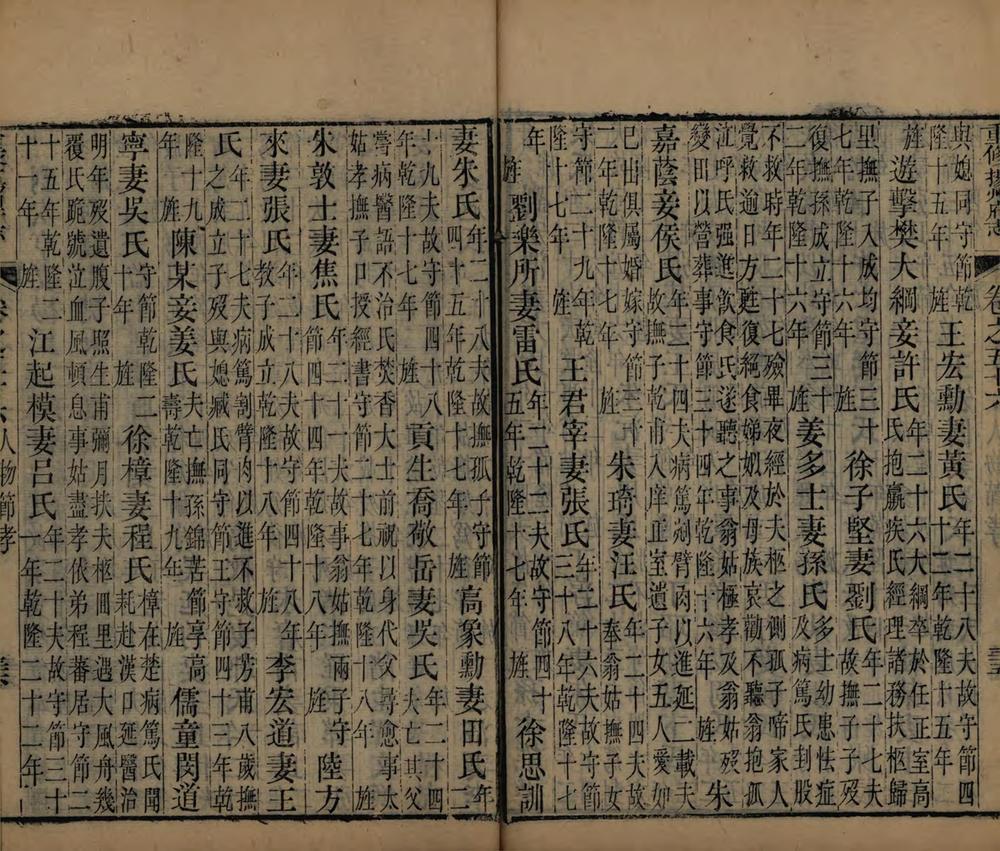 與媳同守節乾隆十五年旌王宏勳妻黃氏年二十八夫故守節四十二年乾隆十五年
旌遊擊樊大綱妾許氏年二十六大綱卒於任正室高氏抱羸疾氏經理諸務扶柩歸
里撫子入成均守節三十七年乾隆十六年旌徐子堅妻劉氏年二十七夫故撫子子歿
復撫孫成立守節三十二年乾隆十六年旌姜多士妻孫氏多士幼患怯症及病篤氏刲股
不救時年二十七殮畢夜經於夫柩之側孤子啼家人覺救逾日方甦復絕食娣姒及母族哀勸不聽翁抱孤
泣呼氏强進飲食氏遂聽之事翁姑極孝及翁姑歿變田以營葬事守節三十四年乾隆十六年旌朱
嘉蔭妾侯氏年二十四夫病篤刲臂肉以進延二載夫故撫子乾甫入庠正室遺子女五人愛如
己出俱屬婚嫁守節三十二年乾隆十七年旌朱琦妻汪氏年二十四夫故奉翁姑撫子女
守節二十九年乾隆十七年旌王君宰妻張氏年二十六夫故守節三十八年乾隆十七
年旌劉樂所妻雷氏年二十二夫故守節四十五年乾隆十七年旌徐思訓
妻朱氏年二十八夫故撫孤子守節四十五年乾隆十七年旌高象勳妻田氏年二
十九夫故守節四十八年乾隆十七年旌貢生喬敬岳妻吳氏年二十四夫亡其父
嘗病醫語不治氏焚香大士前祝以身代父尋愈事太姑孝撫子口授經書守節二十七年乾隆十八年旌
朱敦士妻焦氏年二十一夫故事翁姑撫兩子守節四十四年乾隆十八年旌陸方
來妻張氏年二十八夫故守節四十八年教子成立乾隆十八年旌李宏道妻王
氏年二十七夫病篤割臂肉以進不救子芳甫八歲撫之成立子歿與媳臧氏同守節王守節四十三年乾
隆十九年旌陳某妾姜氏夫亡撫孫錦苦節享高壽乾隆十九年旌儒童閔道
寧妻吳氏守節乾隆二十年旌徐樟妻程氏樟在楚病篤氏聞耗赴漢口延醫治
明年歿遺腹子照生甫彌月扶夫柩回里遇大風舟幾覆氏跪號泣血風頓息事姑盡孝依弟程蕃居守節二
十五年乾隆二十一年旌江起模妻呂氏年二十夫故守節三十一年乾隆二十二年
人物節孝